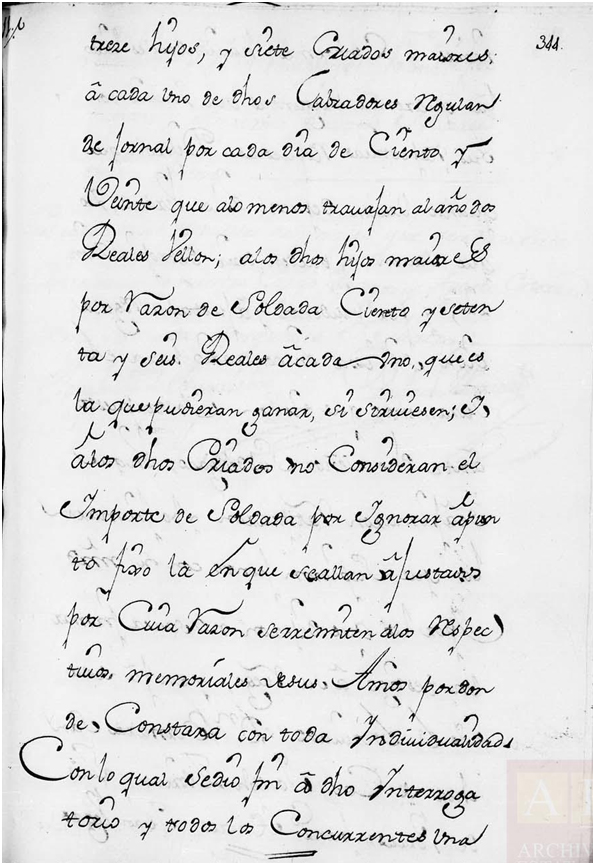 344.
treze hijos, y siete Criados maiores;
â cada Uno de dhos Labradores Regulan
de Jornal por cada dia de Ciento y
Veinte que alo menos travajan al año dos
Reales Vellon; alos dhos hijos maiores
por Razon de Soldada Ciento y seten
ta y seis Reales â cada Uno, que es
la que pudieran ganar, si sirviesen; I
âlos dhos Criados no Consideran el
Importe de Soldada por Ignorar â pun
to fixo la en que se allan âjustados
por Cuia Razon se rremiten alos Respec
tivos memoriales de sus Amos por don
de Constara con toda Individualidad
Con lo qual se dio fin â dho Interroga
torio y todos los Concurrentes Una
A
ARCHIV